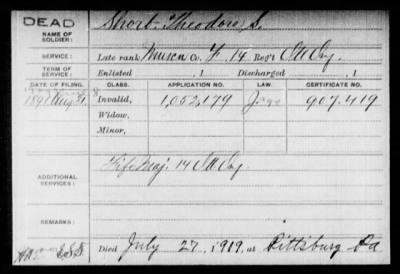 DEAD
NAME OF SOLDIER: Short, Theodore S.
SERVICE: Late rank Muscn Co. F. 14 Reg't Cav.
TERM OF SERVICE: Enlisted , 1 Discharged , 1
DATE OF FILING. CLASS. APPLICATION NO. LAW. CERTIFICATE NO.
1891 Aug 31 Invalid, 1,052,179 907.419
Widow,
Minor,
ADDITIONAL SERVICES: Fife Maj. 14 Cav
REMARKS:
Died July 27, 1919, at Pittsburg Pa